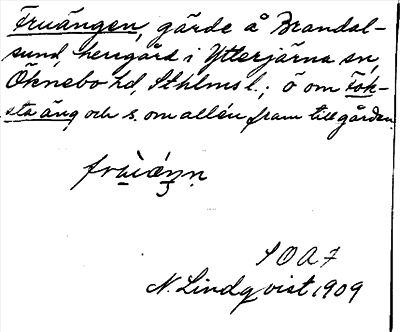 Fruängen, gärde å Brandal-
sund, herrgård i Ytterjärna sn,
Öknebo hd, Sthlms l.; ö om Fok-
sta äng och s. om allén fram till gården.
SOAF
N. Lindqvist 1909